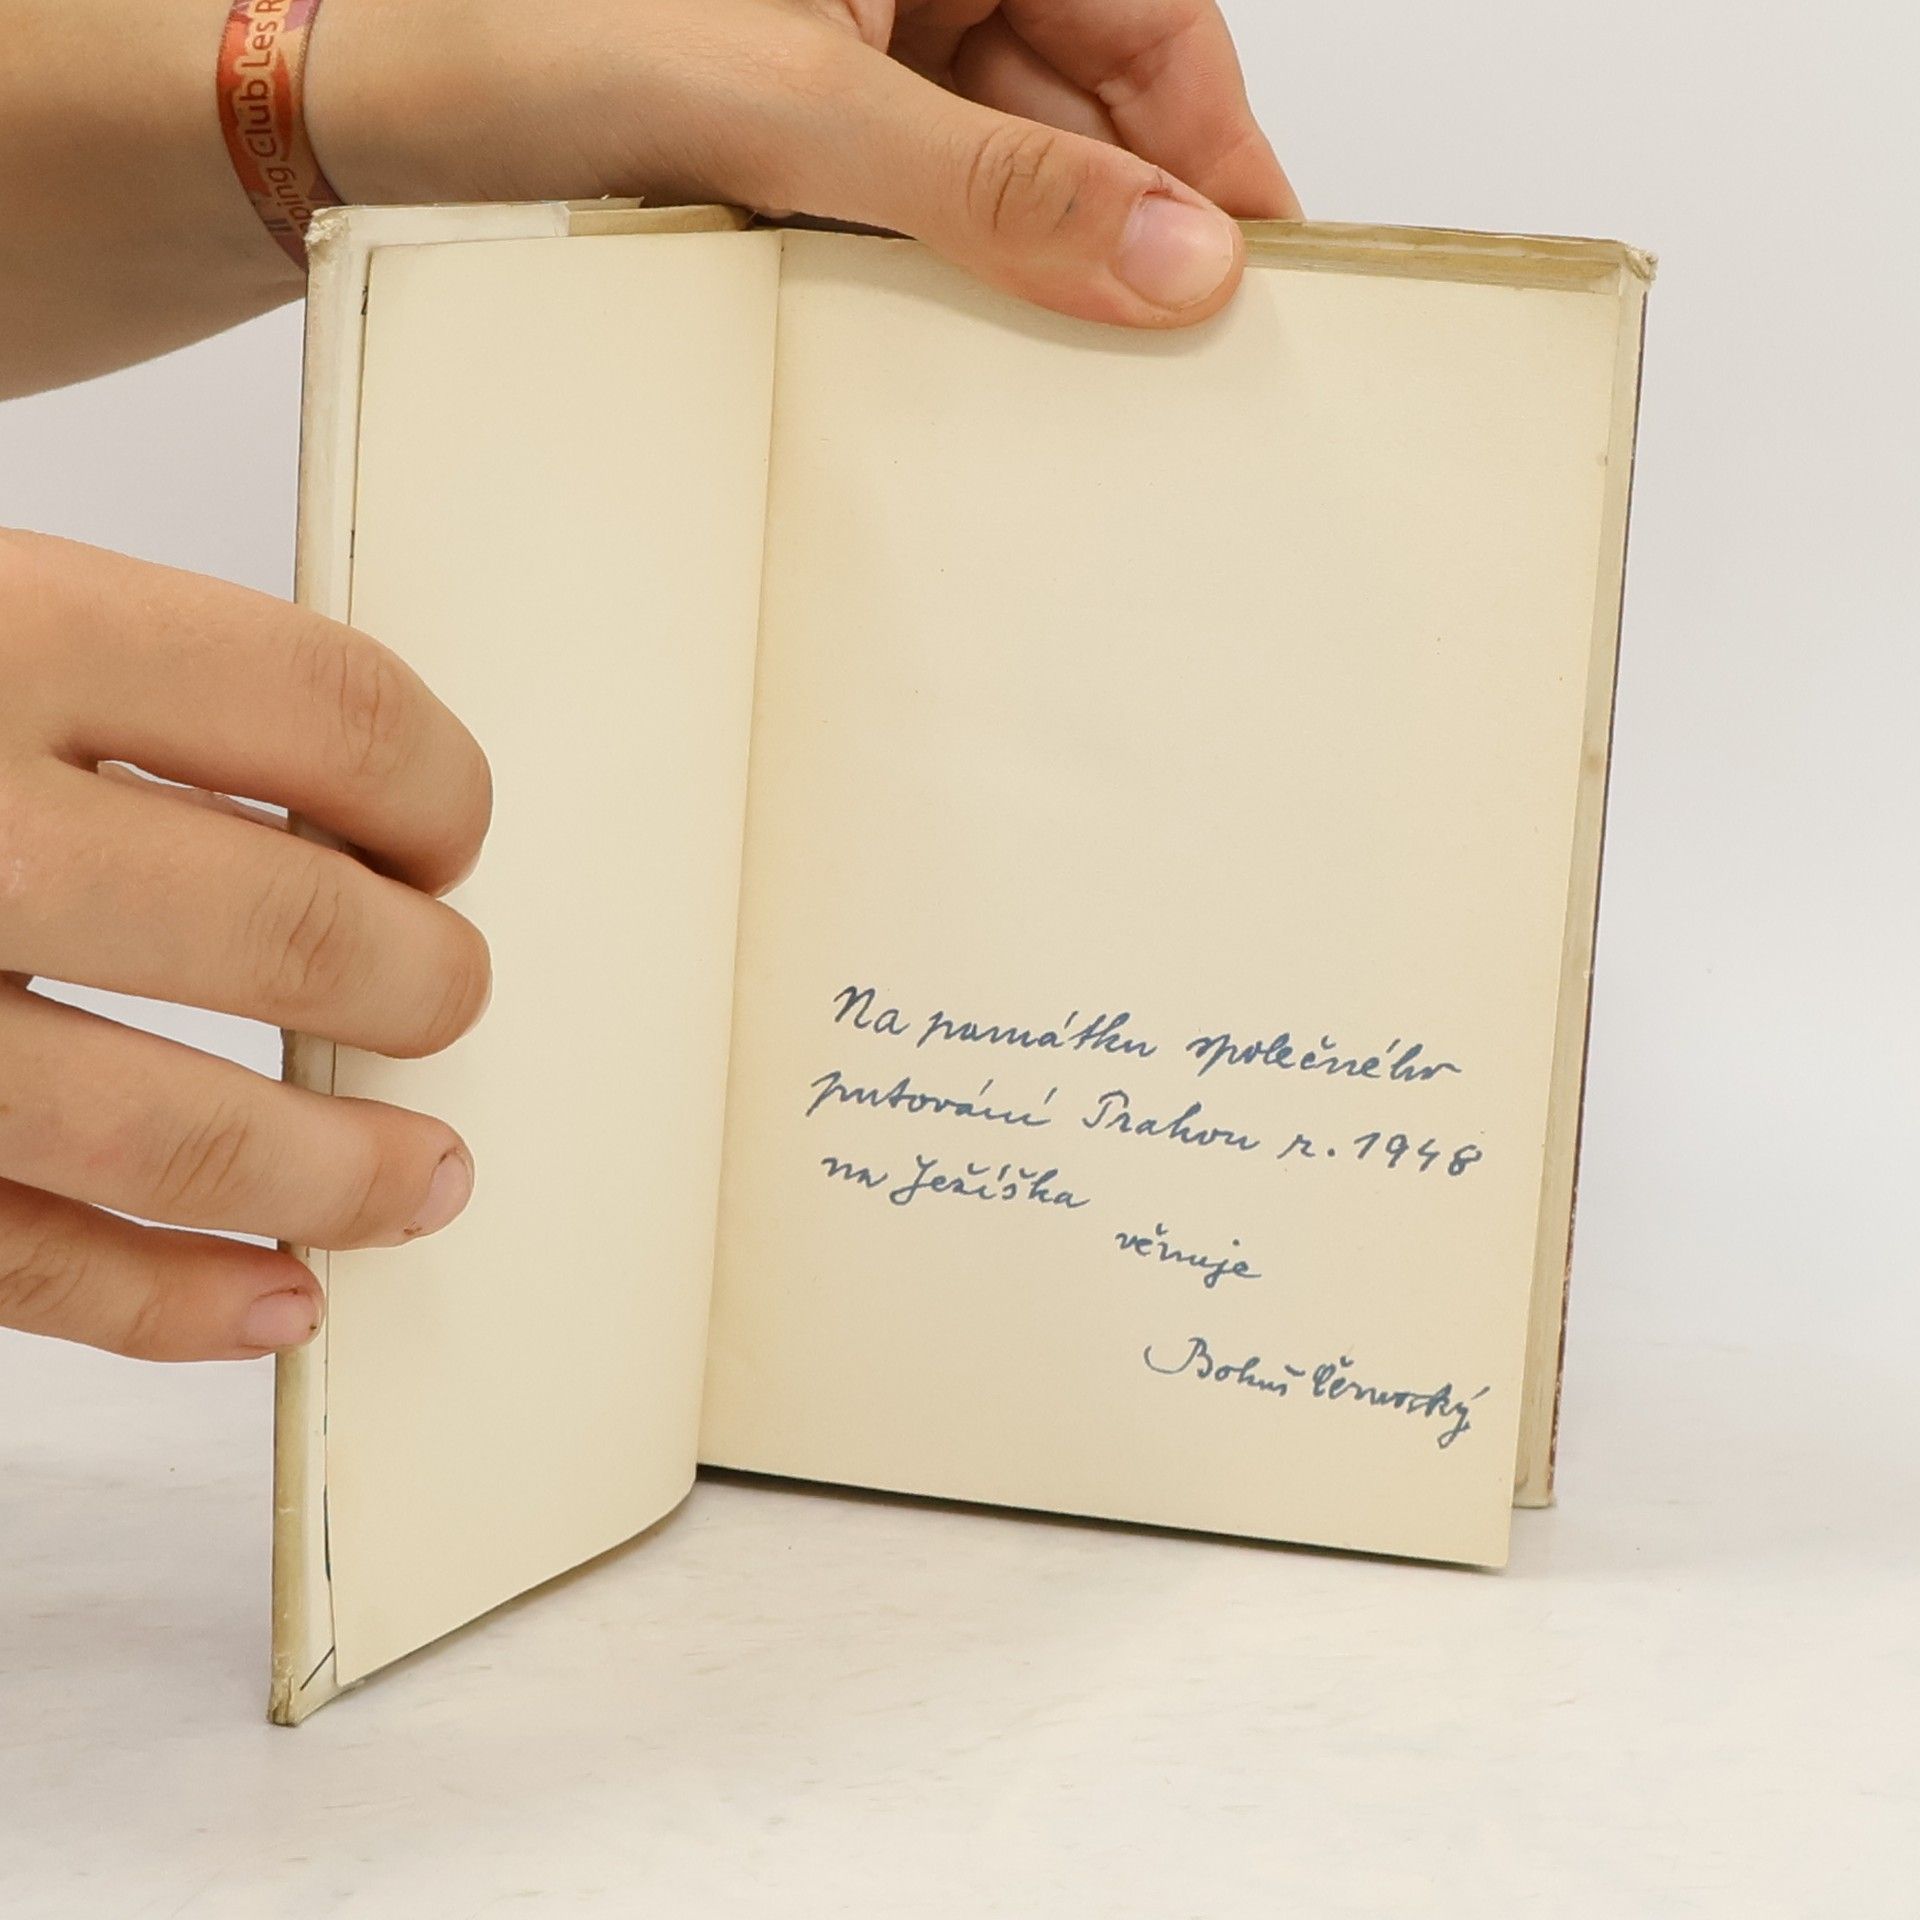 ping Club Les R
Na památku společného
putování Prahou r. 1948
na Ježíška
věnuje
Bohuš Černocký